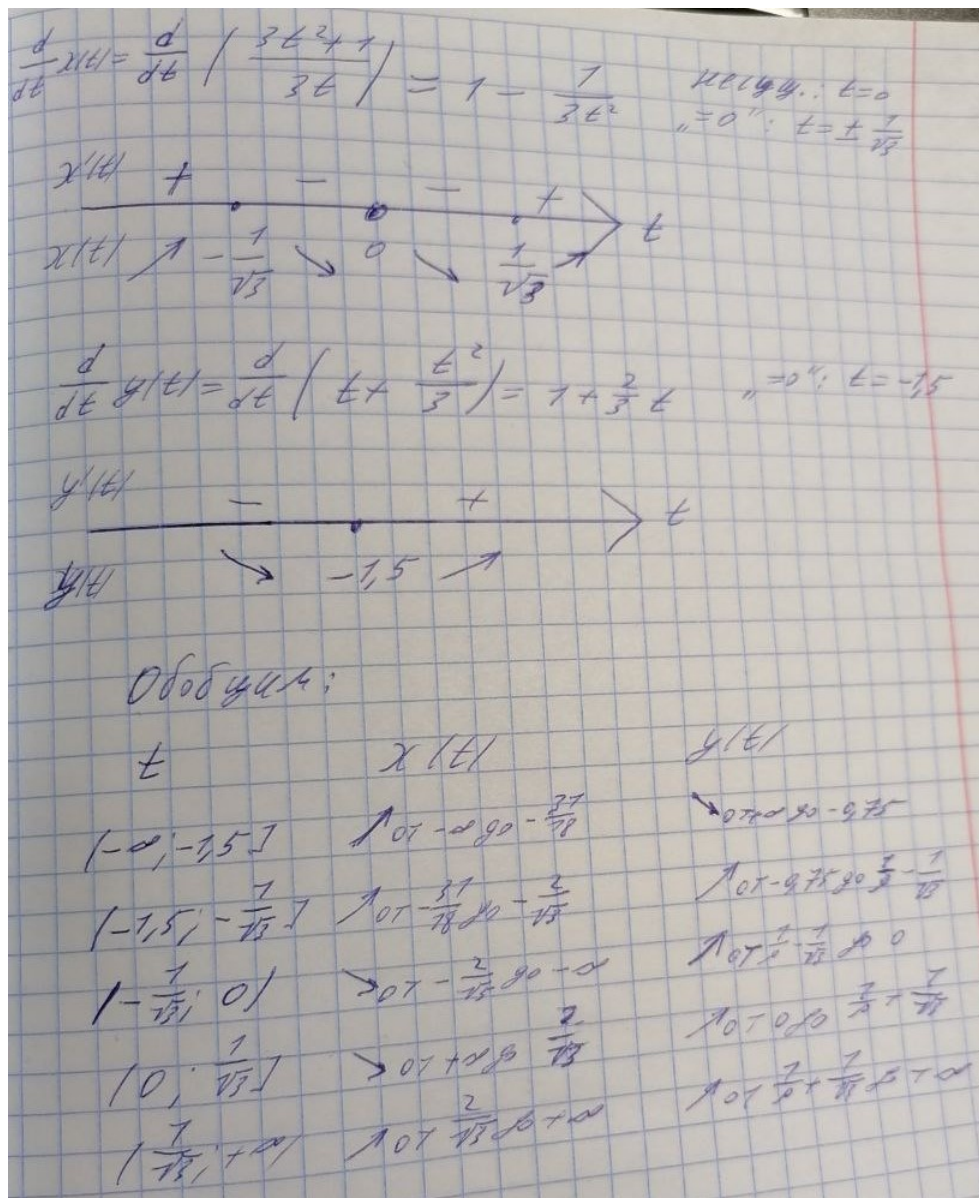 d/dt x(t) = d/dt ( (3t²+1)/(3t) ) = 1 - 1/(3t²)   не сущ.: t=0
"=0": t=± 1/√3
x'(t) + - - + t
x(t) ↗ -1/√3 ↘ 0 ↘ 1/√3 ↗
d/dt y(t) = d/dt ( t + t²/3 ) = 1 + 2/3 t   "=0": t=-1,5
y'(t) - + t
y(t) ↘ -1,5 ↗
Обобщим:
t x(t) y(t)
(-∞; -1,5] ↗ от -∞ до -31/18 ↘ от +∞ до -0,75
(-1,5; -1/√3] ↗ от -31/18 до -2/√3 ↗ от -0,75 до 1/9 - 1/√3
(-1/√3; 0) ↘ от -2/√3 до -∞ ↗ от 1/9 - 1/√3 до 0
(0; 1/√3] ↘ от +∞ до 2/√3 ↗ от 0 до 1/9 + 1/√3
(1/√3; +∞) ↗ от 2/√3 до +∞ ↗ от 1/9 + 1/√3 до +∞